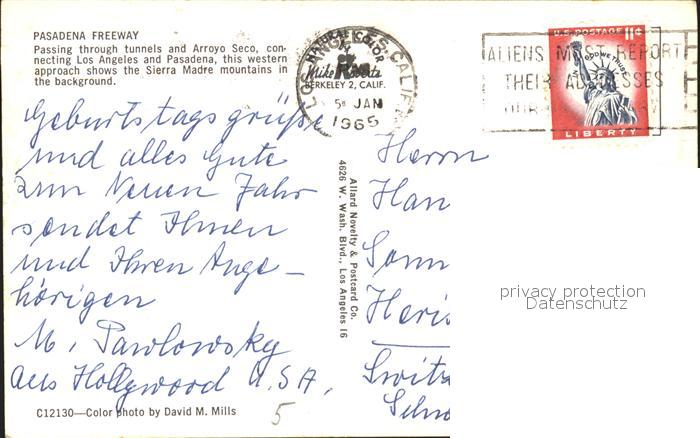 PASADENA FREEWAY
Passing through tunnels and Arroyo Seco, con-
necting Los Angeles and Pasadena, this western
approach shows the Sierra Madre mountains in
the background.
NATURAL COLOR
BY
Mike Roberts
BERKELEY 2, CALIF.
LOS ANGELES, CALIF.
5 JAN
1965
U.S. POSTAGE 11¢
IN GOD WE TRUST
LIBERTY
ALIENS MUST REPORT
THEIR ADDRESSES
DURING
Geburtstagsgrüße
und alles Gute
zum Neuen Jahr
sendet Ihnen
und Ihren Ange-
hörigen
M. Pawlowsky
aus Hollywood U.S.A.
Allard Novelty & Postcard Co.
4626 W. Wash. Blvd., Los Angeles 16
Herrn
Han
Sonn
Heris
Switz
Schw
privacy protection
Datenschutz
C12130—Color photo by David M. Mills
5